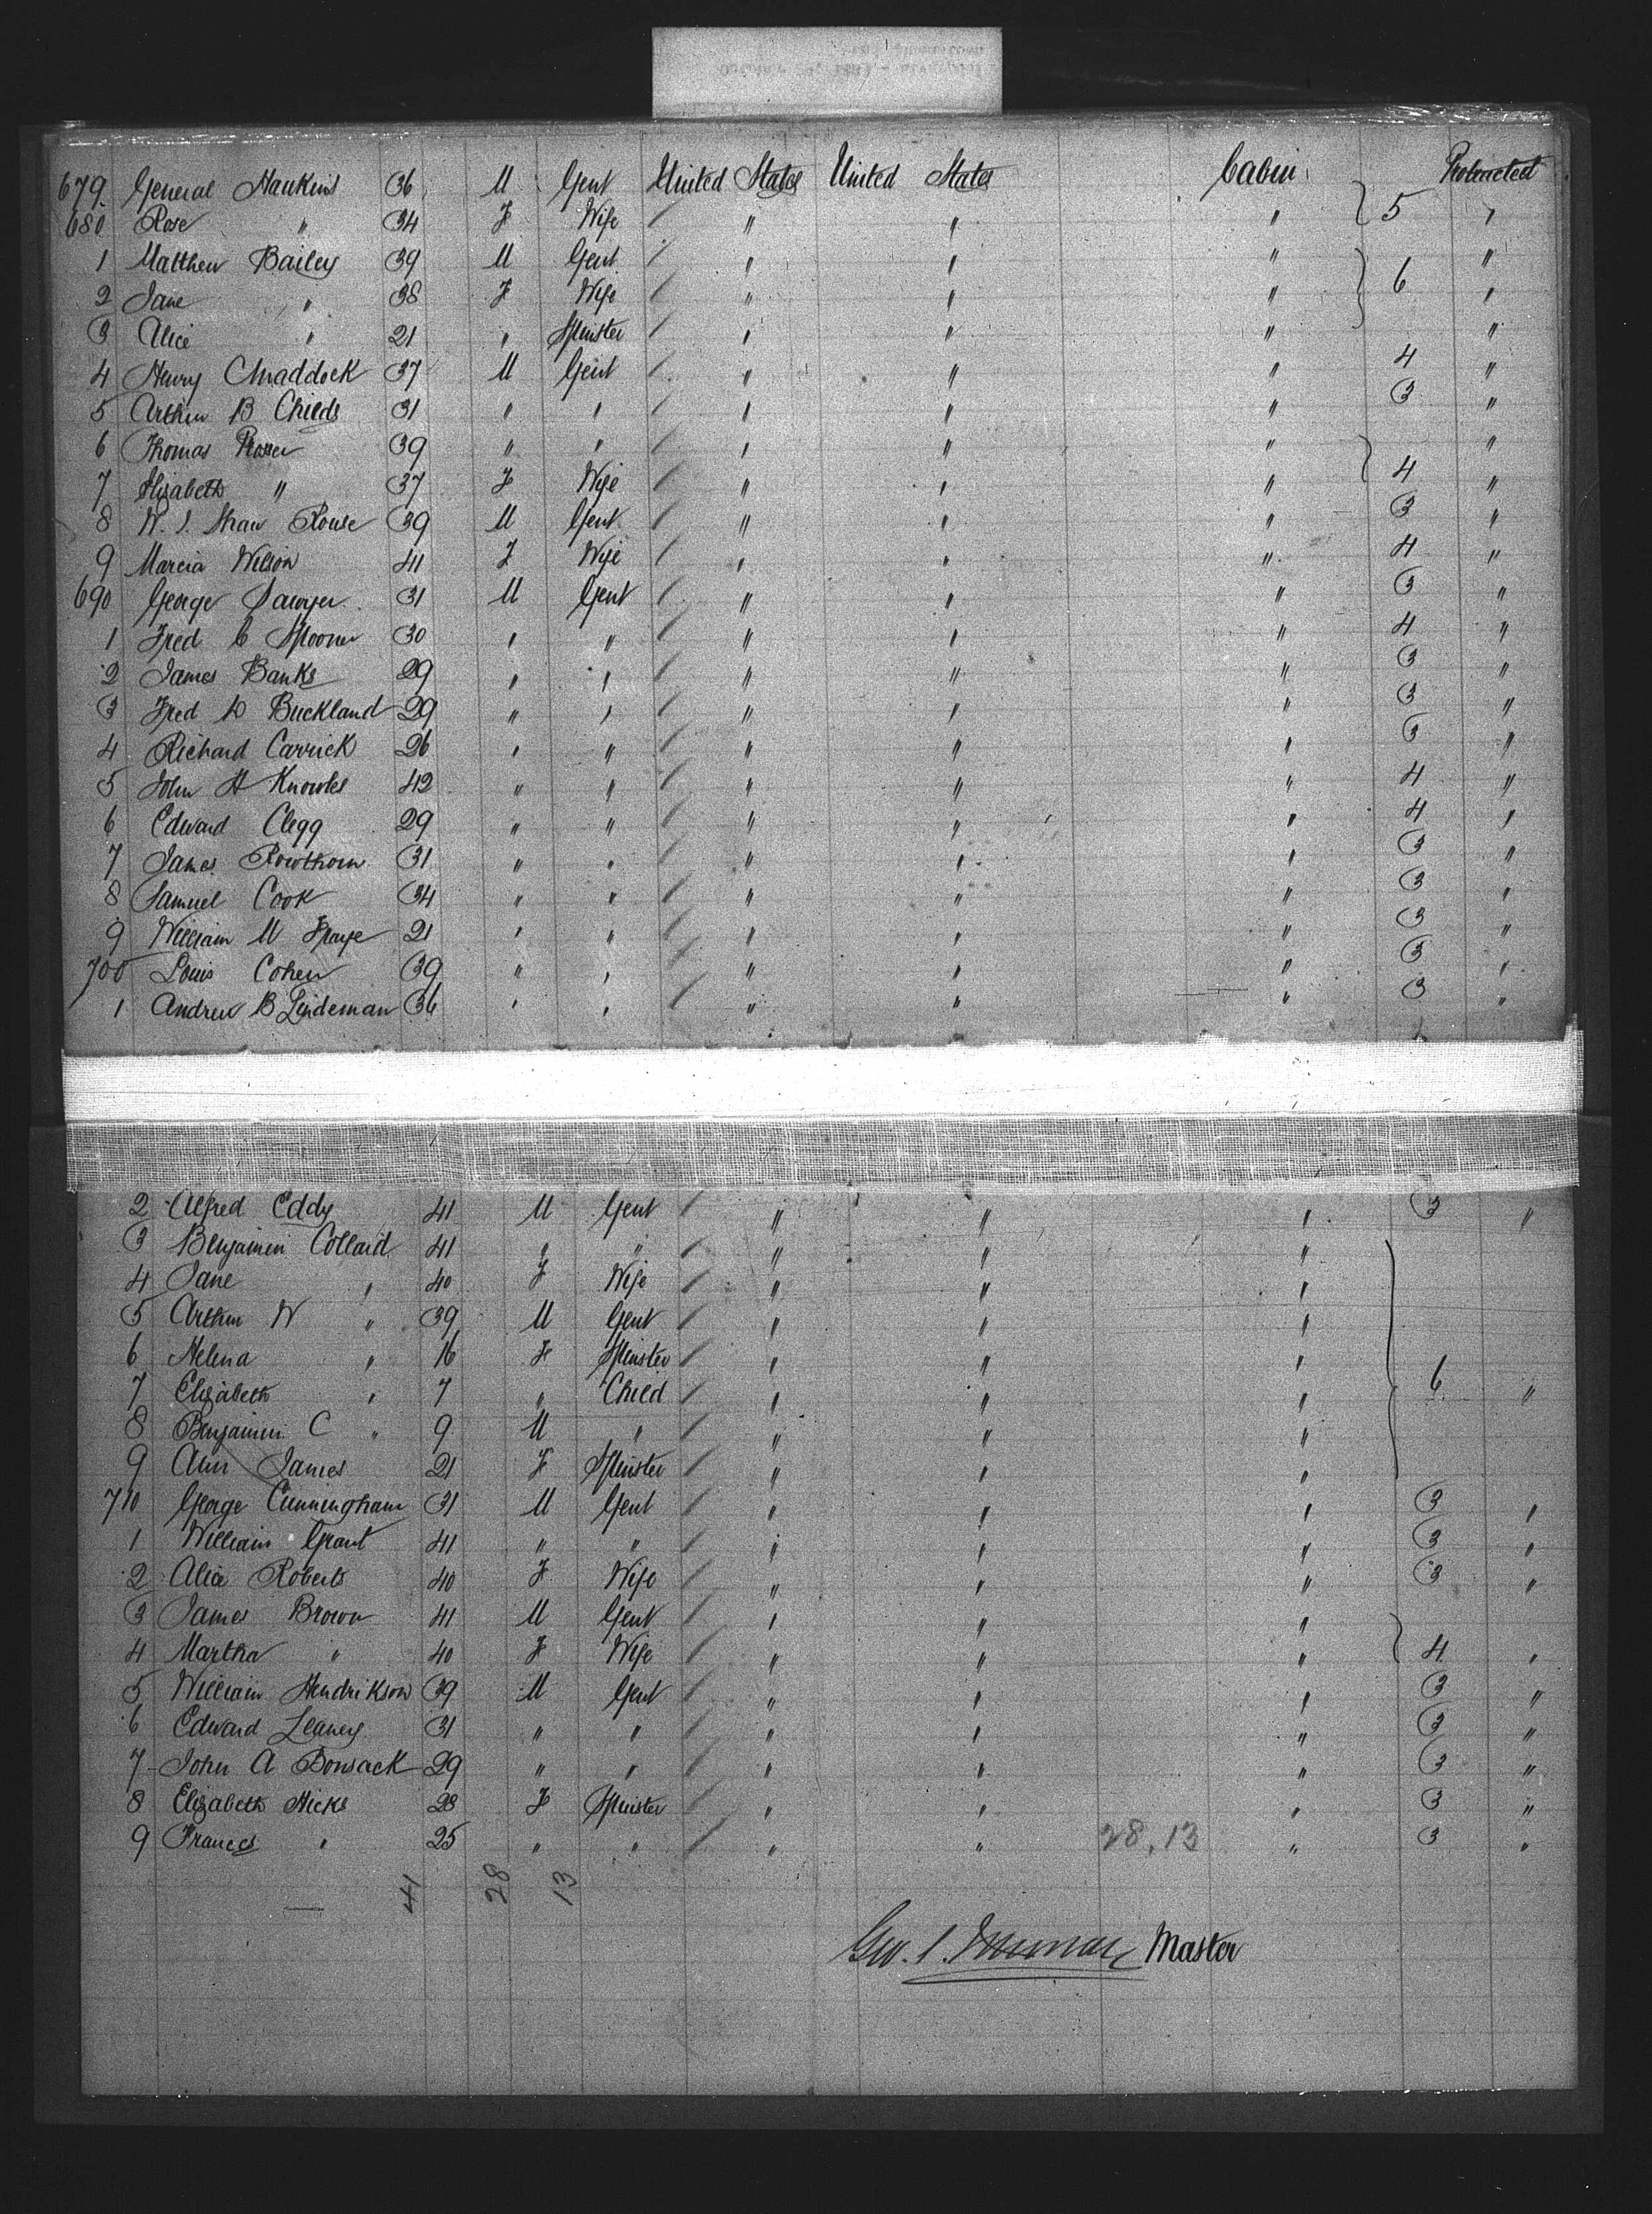 679. General Hawkins 36 M Gent United States United States Cabin 5 Protracted
680 Rose " 34 F Wife " " " "
1 Matthew Bailey 39 M Gent " " " 6 "
2 Jane " 38 F Wife " " " "
3 Alice " 21 " Spinster " " " "
4 Henry Chaddock 37 M Gent " " " 4 "
5 Arthur B Childs 31 " " " " " 3 "
6 Thomas Prosser 39 " " " " " 4 "
7 Elizabeth " 37 F Wife " " " "
8 W. S. Shaw Rouse 39 M Gent " " " 3 "
9 Marcia Wilson 41 F Wife " " " 4 "
690 George Sawyer 31 M Gent " " " 3 "
1 Fred C Spooner 30 " " " " " 4 "
2 James Banks 29 " " " " " 3 "
3 Fred D Buckland 29 " " " " " 3 "
4 Richard Carrick 26 " " " " " 3 "
5 John H Knowles 42 " " " " " 4 "
6 Edward Clegg 29 " " " " " 4 "
7 James Rowthorn 31 " " " " " 3 "
8 Samuel Cook 34 " " " " " 3 "
9 William M 21 " " " " " 3 "
700 Louis Cohen 39 " " " " " 3 "
1 Andrew B Lindeman 36 " " " " " 3 "
2 Alfred Eddy 41 M Gent " " " 3 "
3 Benjamin Collard 41 " " " " "
4 Jane " 40 F Wife " " "
5 Arthur W " 39 M Gent " " "
6 Helena " 16 F Spinster " " "
7 Elizabeth " 7 " Child " " " 6 "
8 Benjamin C " 9 M " " " "
9 Ann James 21 F Spinster " " "
710 George Cunningham 31 M Gent " " " 3 "
1 William Grant 41 " " " " " 3 "
2 Alice Roberts 40 F Wife " " " 3 "
3 James Brown 41 M Gent " " "
4 Martha " 40 F Wife " " " 4 "
5 William Hendrikson 39 M Gent " " " 3 "
6 Edward Leaney 31 " " " " " 3 "
7 John A Bonsack 29 " " " " " 3 "
8 Elizabeth Hicks 28 F Spinster " " " 3 "
9 Frances " 25 " " " " 28,13 " 3 "
41 28 13
Geo. S. Master